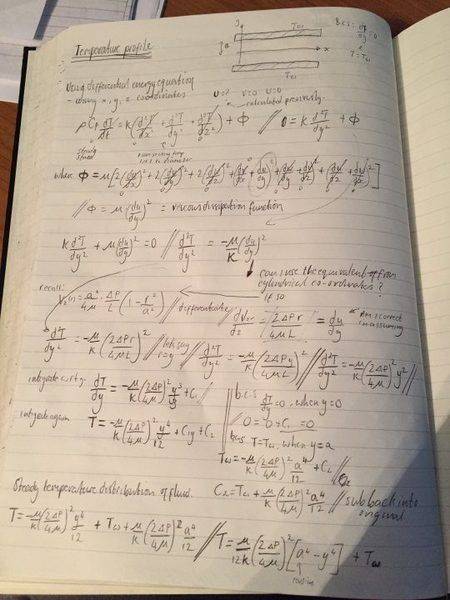 Temperature profile
Tω
a
x
Tω
B.C.s: dT/dy = 0
T = Tω
Using differential energy equation
- using x, y, z coordinates u=? v=0 w=0
calculated previously.
ρCp dT/dt = k(d²T/dx² + d²T/dy² + d²T/dz²) + Φ // 0 = k d²T/dy² + Φ
steady state
where Φ = μ[2(du/dx)² + 2(dv/dy)² + 2(dw/dz)²
// Φ = μ(du/dy)² = viscous dissipation function
k d²T/dy² + μ(du/dy)² = 0 // d²T/dy² = -μ/k (du/dy)²
can i use the equivalent of from
cylindrical co-ordinates?
if so
recall:
a²/4μ ΔP/L (1 - r²/a²) // differentiate //
= 2ΔPr/4μL = du/dy
Am i correct
in assuming
d²T/dy² = -μ/k (2ΔPr/4μL)² // lets say r=y // d²T/dy² = -μ/k (2ΔPy/4μL)² // d²T/dy² = -μ/k (2ΔP/4μ)² y² //
integrate w.r.t y: dT/dy = -μ/k (2ΔP/4μ)² y³/3 + C₁
b.c.s dT/dy = 0, when y=0
0 = 0 + C₁ = 0
integrate again T = -μ/k (2ΔP/4μ)² y⁴/12 + C₁y + C₂
bcs T = Tω, when y = a
Tω = -μ/k (2ΔP/4μ)² a⁴/12 + C₂
Steady temperature distribution of fluid. C₂ = Tω + μ/k (2ΔP/4μ)² a⁴/12 // sub back into
original
T = -μ/k (2ΔP/4μ)² y⁴/12 + Tω + μ/k (2ΔP/4μ)² a⁴/12 // T = μ/12k (2ΔP/4μ)² [a⁴ - y⁴] + Tω
radius